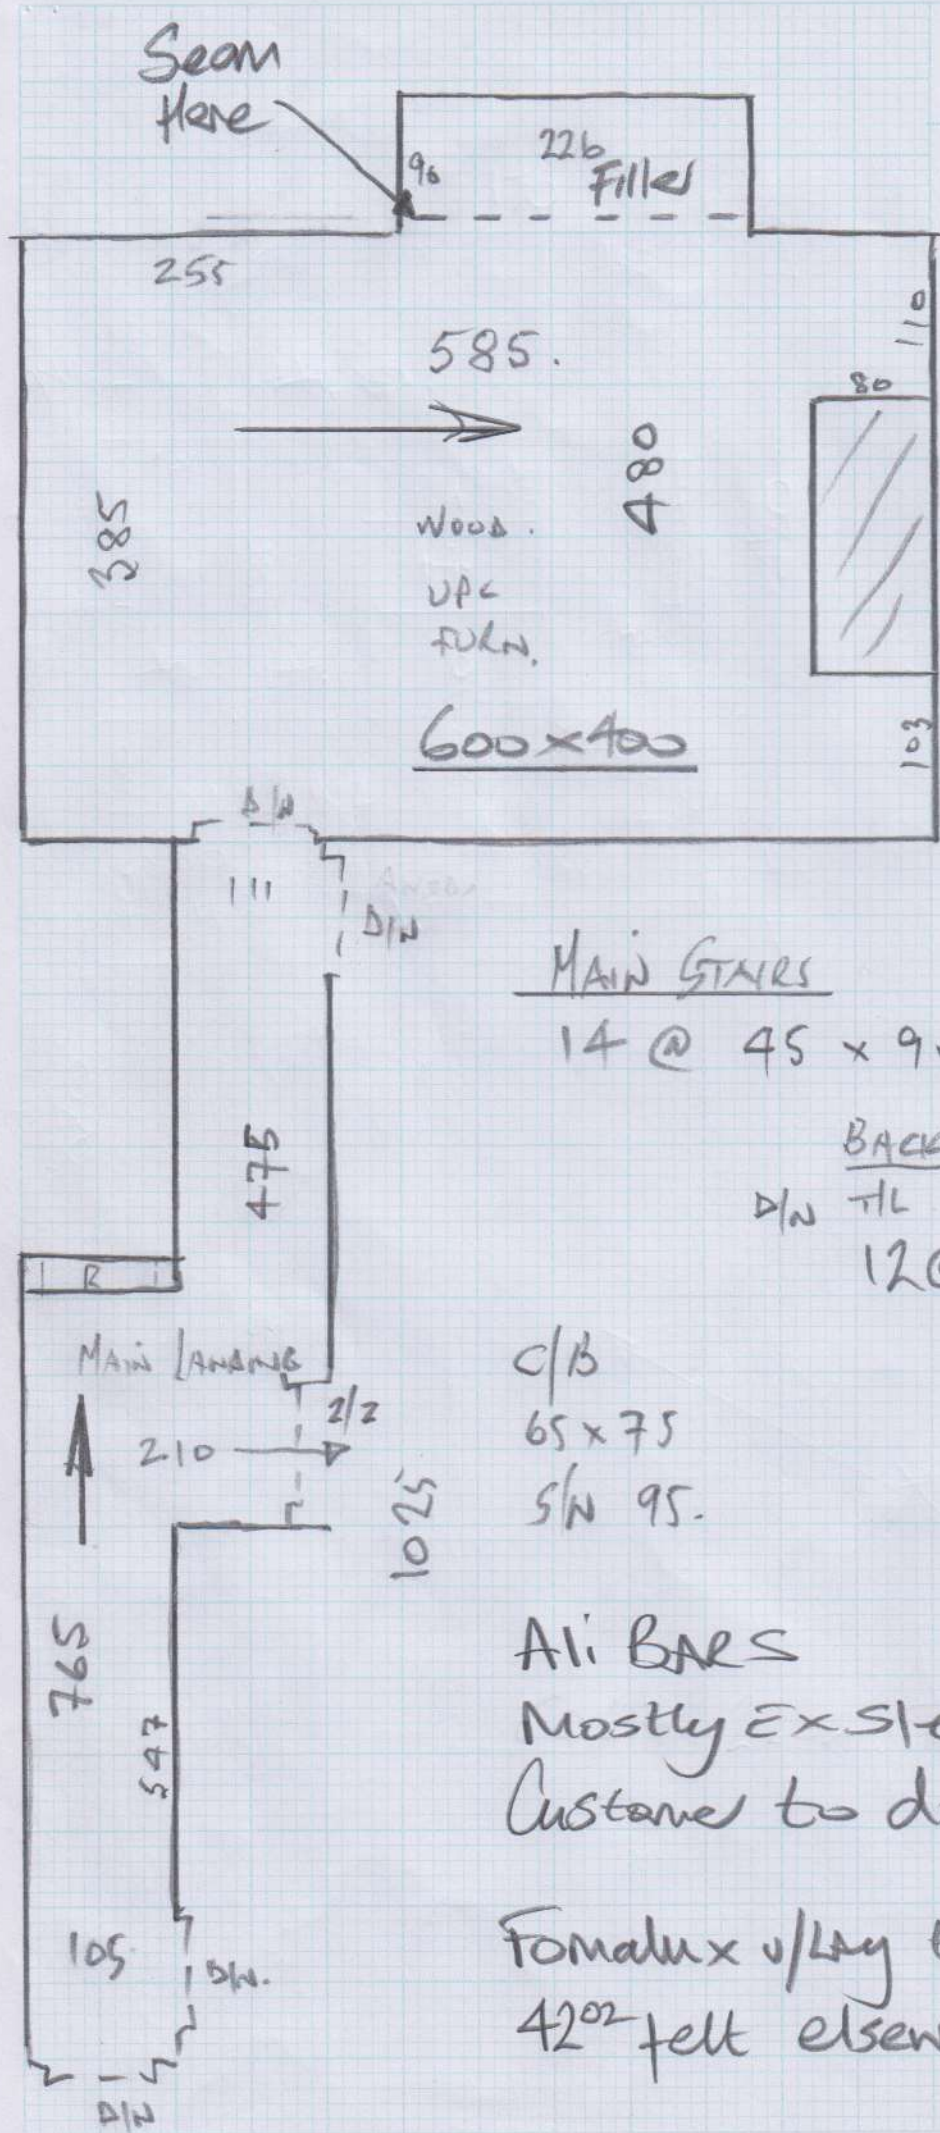 Seam
Here
226
96
Filler
255
110
585.
80
480
385
WOOD.
UPL
FURN.
600x400
103
D/N
111
D/N
MAIN STAIRS
14 @ 45 x 9
475
BACK
D/N T/L
12@
R
MAIN LANDING
C/B
2/2
65 x 75
210
S/N 95.
1025
765
Ali BARS
Mostly Ex Sl
547
Customer to d
105
D/N.
Fomalux u/Lay
42oz felt elsew
D/N